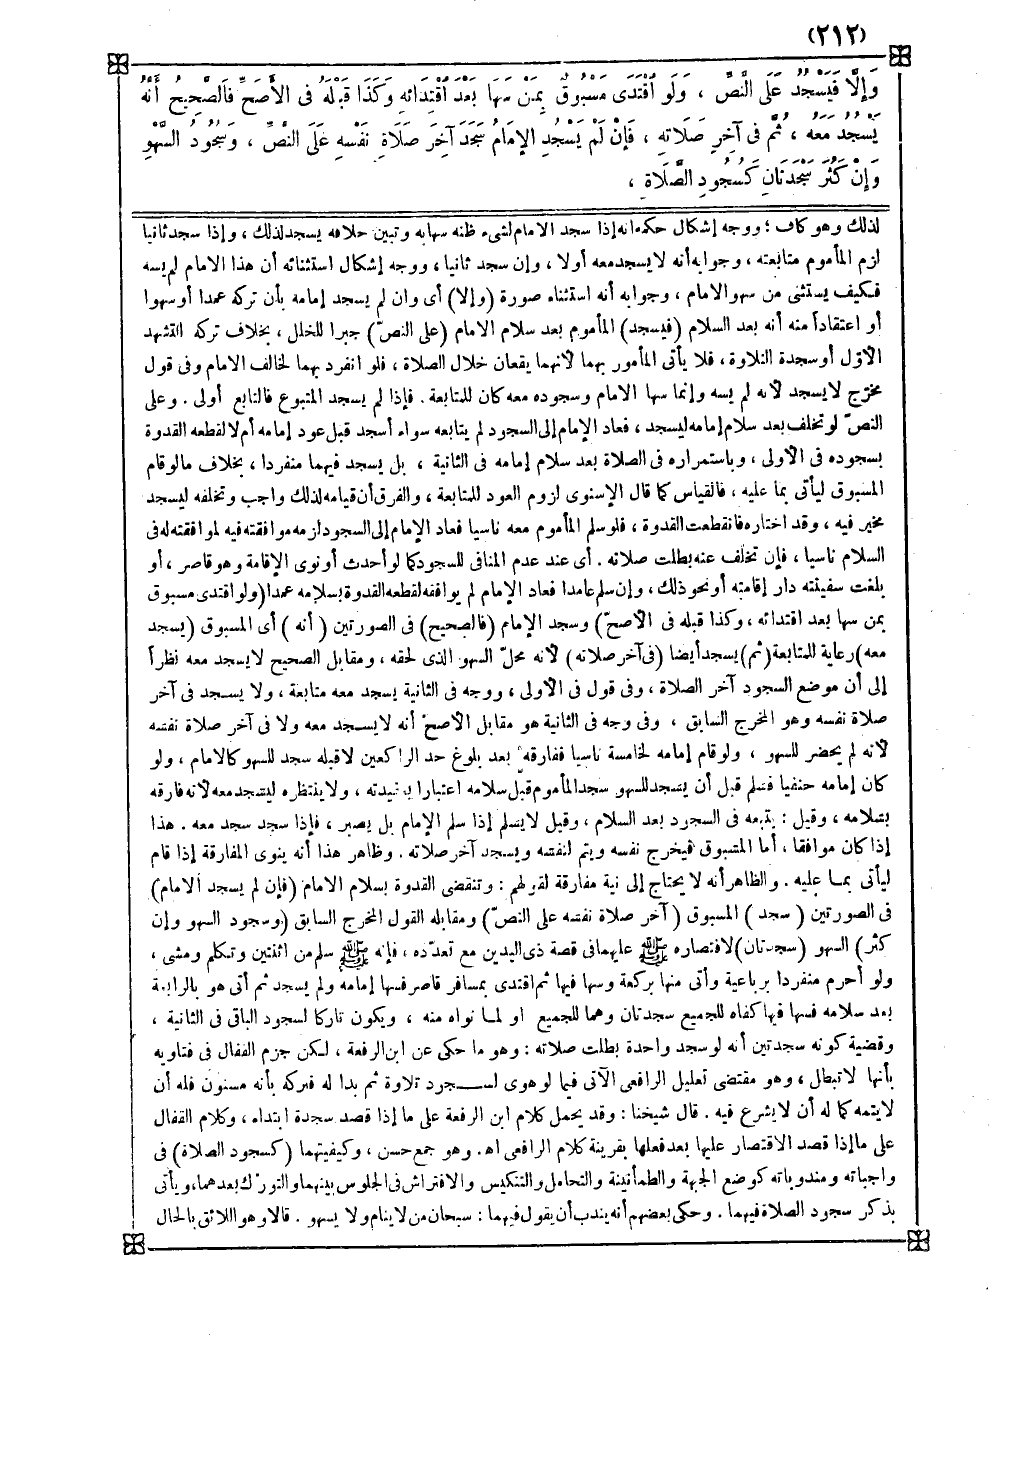 (٢١٢)
وَإِلَّا فَيَسْجُدُ عَلَى النَّصِّ ، وَلَوِ اقْتَدَى مَسْبُوقٌ بِمَنْ سَهَا بَعْدَ اقْتِدَائِهِ وَكَذَا قَبْلَهُ فِى الْأَصَحِّ فَالصَّحِيحُ أَنَّهُ
يَسْجُدُ مَعَهُ ، ثُمَّ فِى آخِرِ صَلَاتِهِ ، فَإِنْ لَمْ يَسْجُدِ الْإِمَامُ سَجَدَ آخِرَ صَلَاةِ نَفْسِهِ عَلَى النَّصِّ ، وَسُجُودُ السَّهْوِ
وَإِنْ كَثُرَ سَجْدَتَانِ كَسُجُودِ الصَّلَاةِ ،
لذلك وهو كاف ؛ ووجه إشكال حكمه انه إذا سجد الامام لشىء ظنه سها به وتبين خلافه يسجد لذلك ، وإذا سجد ثانيا
لزم المأموم متابعته ، وجوابه أنه لا يسجد معه أولا ، وإن سجد ثانيا ، ووجه إشكال استثنائه أن هذا الامام لم يسه
فكيف يستثنى من سهو الامام ، وجوابه أنه استثناء صورة (وإلا) أى وان لم يسجد إمامه بأن تركه عمدا أو سهوا
أو اعتقادا منه أنه بعد السلام (فيسجد) المأموم بعد سلام الامام (على النصّ) جبرا للخلل ، بخلاف تركه التشهد
الأوّل أو سجدة التلاوة ، فلا يأتى المأمور بهما لأنهما يقعان خلال الصلاة ، فلو انفرد بهما لخالف الامام وفى قول
مخرّج لا يسجد لأنه لم يسه وإنما سها الامام وسجوده معه كان للمتابعة . فإذا لم يسجد المتبوع فالتابع أولى . وعلى
النصّ لو تخلف بعد سلام إمامه ليسجد ، فعاد الإمام إلى السجود لم يتابعه سواء أسجد قبل عود إمامه أم لا لقطعه القدوة
بسجوده فى الأولى ، وباستمراره فى الصلاة بعد سلام إمامه فى الثانية ، بل يسجد فيهما منفردا ، بخلاف مالو قام
المسبوق ليأتى بما عليه ، فالقياس كما قال الإسنوى لزوم العود للمتابعة ، والفرق أن قيامه لذلك واجب وتخلفه ليسجد
مخير فيه ، وقد اختاره فانقطعت القدوة ، فلو سلم المأموم معه ناسيا فعاد الإمام إلى السجود لزمه موافقته فيه لموافقته له فى
السلام ناسيا ، فإن تخلف عنه بطلت صلاته . أى عند عدم المنافى للسجود كما لو أحدث أو نوى الإقامة وهو قاصر ، أو
بلغت سفينته دار إقامته أو نحو ذلك ، وإن سلم عامدا فعاد الإمام لم يوافقه لقطعه القدوة بسلامه عمدا (ولو اقتدى مسبوق
بمن سها بعد اقتدائه ، وكذا قبله فى الأصح) وسجد الإمام (فالصحيح) فى الصورتين (أنه) أى المسبوق (يسجد
معه) رعاية للمتابعة (ثم) يسجد أيضا (فى آخر صلاته) لأنه محلّ السهو الذى لحقه ، ومقابل الصحيح لا يسجد معه نظراً
إلى أن موضع السجود آخر الصلاة ، وفى قول فى الأولى ، ووجه فى الثانية يسجد معه متابعة ، ولا يسجد فى آخر
صلاة نفسه وهو المخرج السابق ، وفى وجه فى الثانية هو مقابل الأصح أنه لا يسجد معه ولا فى آخر صلاة نفسه
لأنه لم يحضر للسهو ، ولو قام إمامه لخامسة ناسيا ففارقه بعد بلوغ حد الراكعين لا قبله سجد للسهو كالامام ، ولو
كان إمامه حنفيا فسلم قبل أن يسجد للسهو سجد المأموم قبل سلامه اعتبارا بعقيدته ، ولا ينتظره ليسجد معه لأنه فارقه
بسلامه ، وقيل : يتبعه فى السجود بعد السلام ، وقيل لا يسلم إذا سلم الإمام بل يصبر ، فإذا سجد سجد معه . هذا
إذا كان موافقا ، أما المسبوق فيخرج نفسه ويتم لنفسه ويسجد آخر صلاته . وظاهر هذا أنه ينوى المفارقة إذا قام
ليأتى بما عليه . والظاهر أنه لا يحتاج إلى نية مفارقة لقولهم : وتنقضى القدوة بسلام الامام (فإن لم يسجد الامام)
فى الصورتين (سجد) المسبوق (آخر صلاة نفسه على النصّ) ومقابله القول المخرج السابق (وسجود السهو وإن
كثر) السهو (سجدتان) لاقتصاره ﷺ عليهما فى قصة ذى اليدين مع تعدّده ، فإنه ﷺ سلم من اثنتين وتكلم ومشى ،
ولو أحرم منفردا برباعية وأتى منها بركعة وسها فيها ثم اقتدى بمسافر قاصر فسها إمامه ولم يسجد ثم أتى هو بالرابعة
بعد سلامه فسها فيها كفاه للجميع سجدتان وهما للجميع او لما نواه منه ، ويكون تاركا لسجود الباقى فى الثانية ،
وقضية كونه سجدتين أنه لو سجد واحدة بطلت صلاته : وهو ما حكى عن ابن الرفعة ، لكن جزم القفال فى فتاويه
بأنها لاتبطل ، وهو مقتضى تعليل الرافعى الآتى فيما لو هوى لسجود تلاوة ثم بدا له فتركه بأنه مسنون فله أن
لايتمه كما له أن لا يشرع فيه . قال شيخنا : وقد يحمل كلام ابن الرفعة على ما إذا قصد سجدة ابتداء ، وكلام القفال
على ما إذا قصد الاقتصار عليها بعد فعلها بقرينة كلام الرافعى اه . وهو جمع حسن ، وكيفيتهما (كسجود الصلاة) فى
واجباته ومندوباته كوضع الجبهة والطمأنينة والتحامل والتنكيس والافتراش فى الجلوس بينهما والتورّك بعدهما ، ويأتى
بذكر سجود الصلاة فيهما . وحكى بعضهم أنه يندب أن يقول فيهما : سبحان من لا ينام ولا يسهو . قالا وهو اللائق بالحال